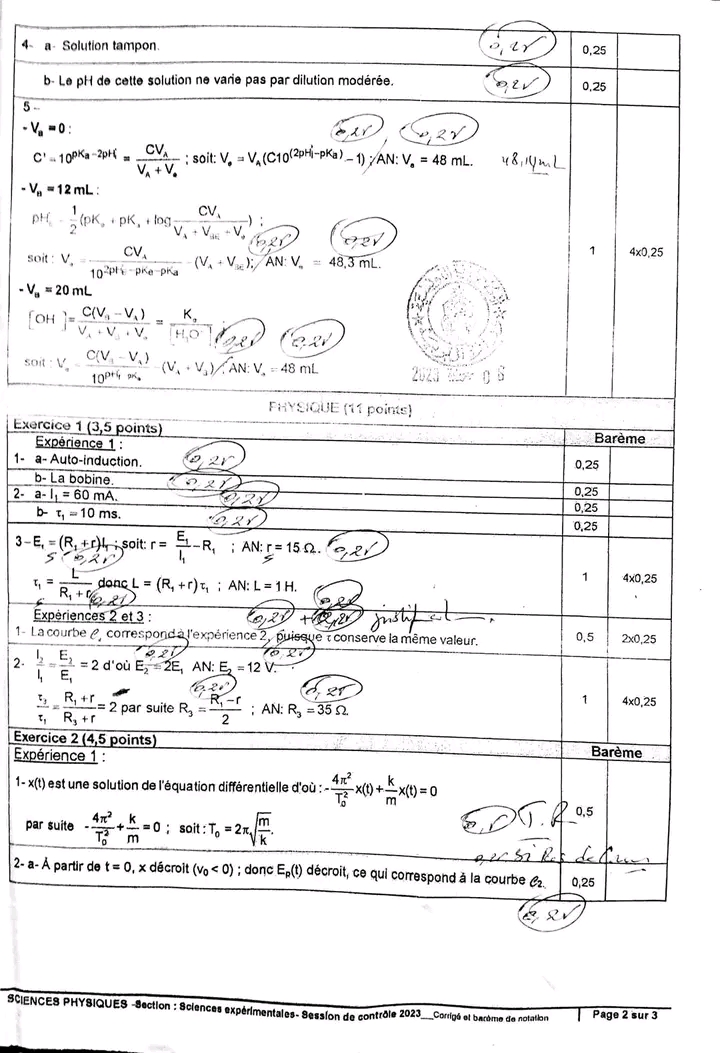 4- a- Solution tampon. 0,25 0,25
b- Le pH de cette solution ne varie pas par dilution modérée. 0,25 0,25
5 –
- V_B = 0 : 0,25 0,25
C' = 10^(pKa–2pHi) = CV_A / (V_A + V_e) ; soit: V_e = V_A(C10^(2pHi–pKa) – 1) ; AN: V_e = 48 mL. 48,14 mL
- V_B = 12 mL :
pHi = 1/2 (pK_e + pK_a + log CV_A / (V_A + V_BE + V_e)) ; 1 4x0,25
soit : V_e = CV_A / 10^(2pHi–pKe–pKa) – (V_A + V_BE); AN: V_e = 48,3 mL. 0,25 0,25
- V_B = 20 mL
[OH⁻] = C(V_B – V_A) / (V_A + V_B + V_e) = K_e / [H₃O⁺] ; 0,25 0,25
soit : V_e = C(V_B – V_A) / 10^(pHi–pKe) – (V_A + V_B) ; AN: V_e = 48 mL
2023 06
PHYSIQUE (11 points)
Exercice 1 (3,5 points) Barème
Expérience 1 :
1- a- Auto-induction. 0,25 0,25
b- La bobine. 0,25 0,25
2- a- I₁ = 60 mA. 0,25 0,25
b- τ₁ = 10 ms. 0,25 0,25
3 – E₁ = (R₁ + r)I₁ ; soit: r = E₁/I₁ – R₁ ; AN: r = 15 Ω. 0,25
0,25
τ₁ = L / (R₁ + r) donc L = (R₁ + r)τ₁ ; AN: L = 1 H. 1 4x0,25
0,25 0,25
Expériences 2 et 3 : 0,25 + 0,25
1- La courbe 𝒞 correspond à l'expérience 2, puisque τ conserve la même valeur. 0,5 2x0,25
2- I₂/I₁ = E₂/E₁ = 2 d'où E₂ = 2E₁ AN: E₂ = 12 V. 0,25 0,25
τ₃/τ₁ = (R₁ + r)/(R₃ + r) = 2 par suite R₃ = (R₁ – r)/2 ; AN: R₃ = 35 Ω. 0,25 0,25 1 4x0,25
Exercice 2 (4,5 points) Barème
Expérience 1 :
1- x(t) est une solution de l'équation différentielle d'où : - 4π²/T₀² x(t) + k/m x(t) = 0
par suite - 4π²/T₀² + k/m = 0 ; soit : T₀ = 2π√(m/k). 0,5 T.R 0,5
2- a- À partir de t = 0, x décroit (v₀ < 0) ; donc Ep(t) décroit, ce qui correspond à la courbe 𝒞₂. 0,25
0,25
SCIENCES PHYSIQUES -Section : Sciences expérimentales- Session de contrôle 2023__Corrigé et barème de notation Page 2 sur 3